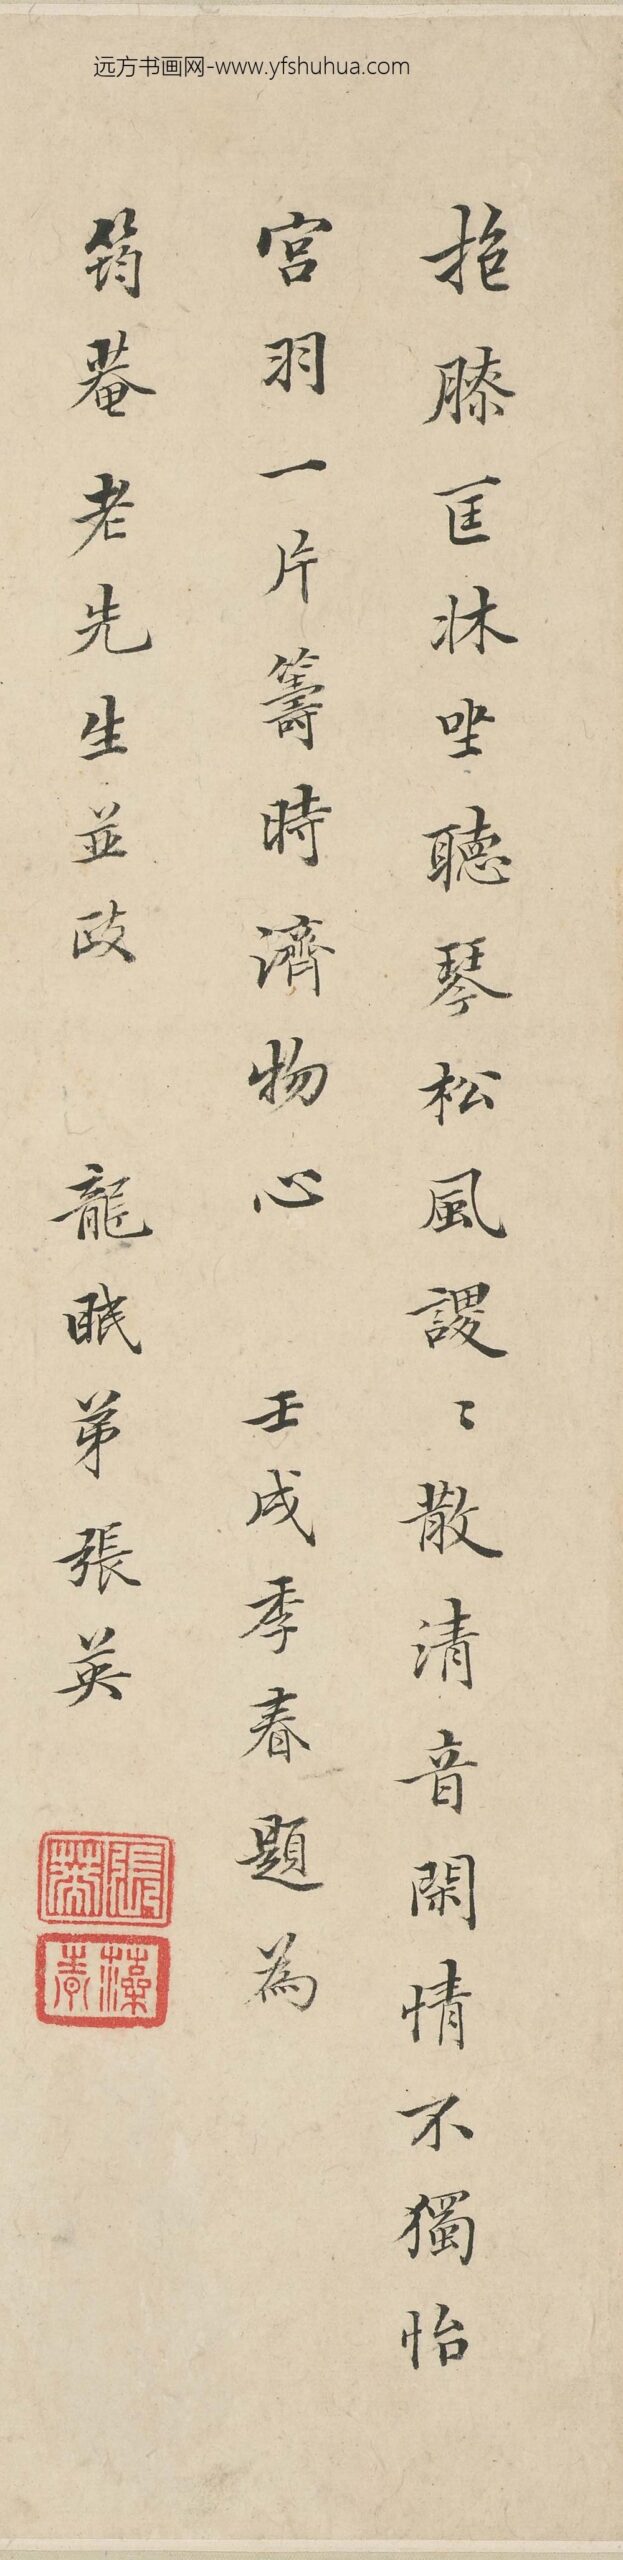 远方书画网-www.yfshuhua.com
抱膝匡牀坐聽琴松風謖〻散清音閑情不獨怡
宮羽一片籌時濟物心　壬戌季春題為
筠菴老先生並政　龍眠弟張英
張英